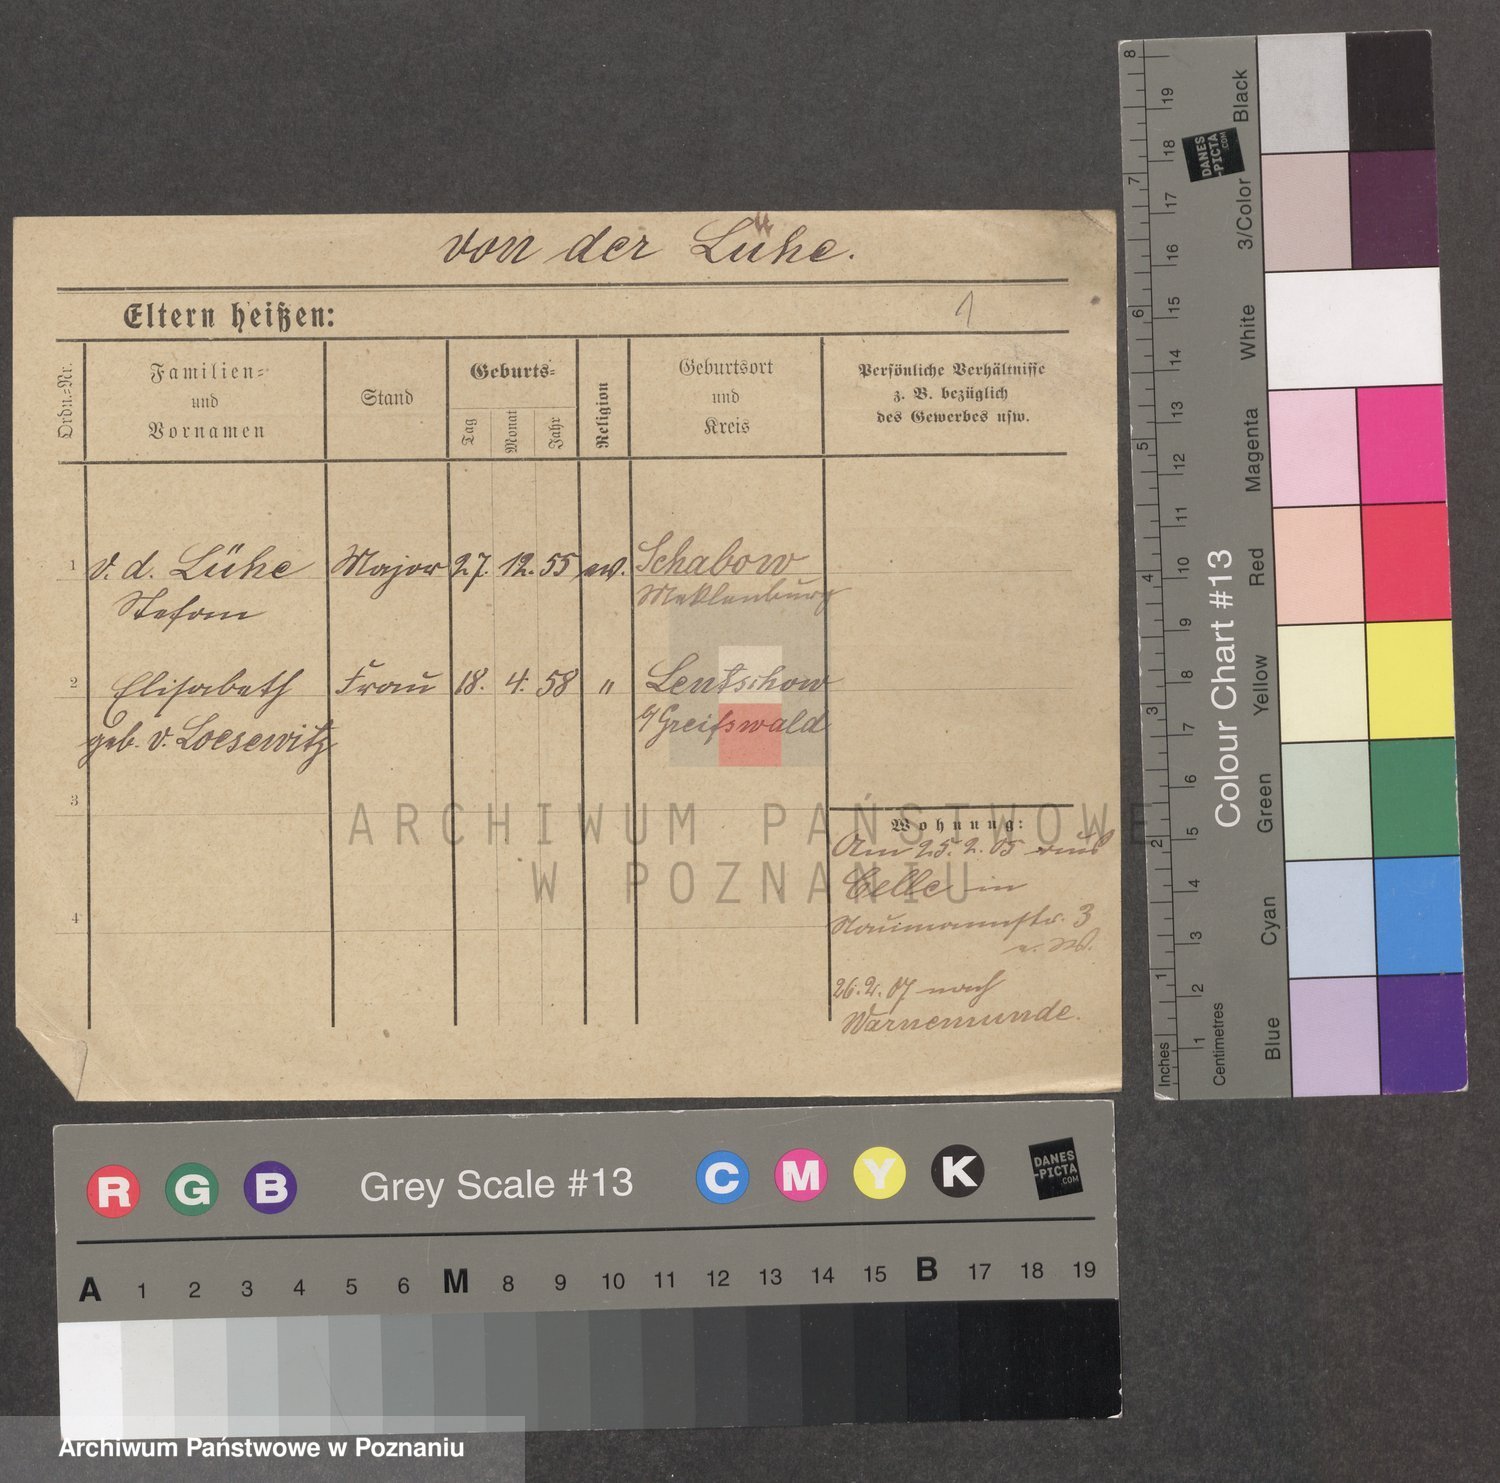 von der Lühe.
Eltern heißen:
1
Ordn.-Nr.
Familien-
und
Vornamen
Stand
Geburts-
Tag
Monat
Jahr
Religion
Geburtsort
und
Kreis
Persönliche Verhältnisse
z. B. bezüglich
des Gewerbes usw.
1 v. d. Lühe Major 27. 12. 55 ev. Schabow
Stefan Meklenburg
2 Elisabeth Frau 18. 4. 58 " Lentschow
geb. v. Loesewitz b/Greifswald
3
4
Wohnung:
Am 25. 2. 05 aus
Celle in
Naumannstr. 3
26. 2. 07 nach
Warnemunde.
ARCHIWUM PAŃSTWOWE
W POZNANIU
R G B Grey Scale #13 C M Y K
DANES
-PICTA
.COM
A 1 2 3 4 5 6 M 8 9 10 11 12 13 14 15 B 17 18 19
Archiwum Państwowe w Poznaniu
Colour Chart #13
DANES
-PICTA
.COM
Black
3/Color
White
Magenta
Red
Yellow
Green
Cyan
Blue
Inches
1 2 3 4 5 6 7 8
Centimetres
1 2 3 4 5 6 7 8 9 10 11 12 13 14 15 16 17 18 19